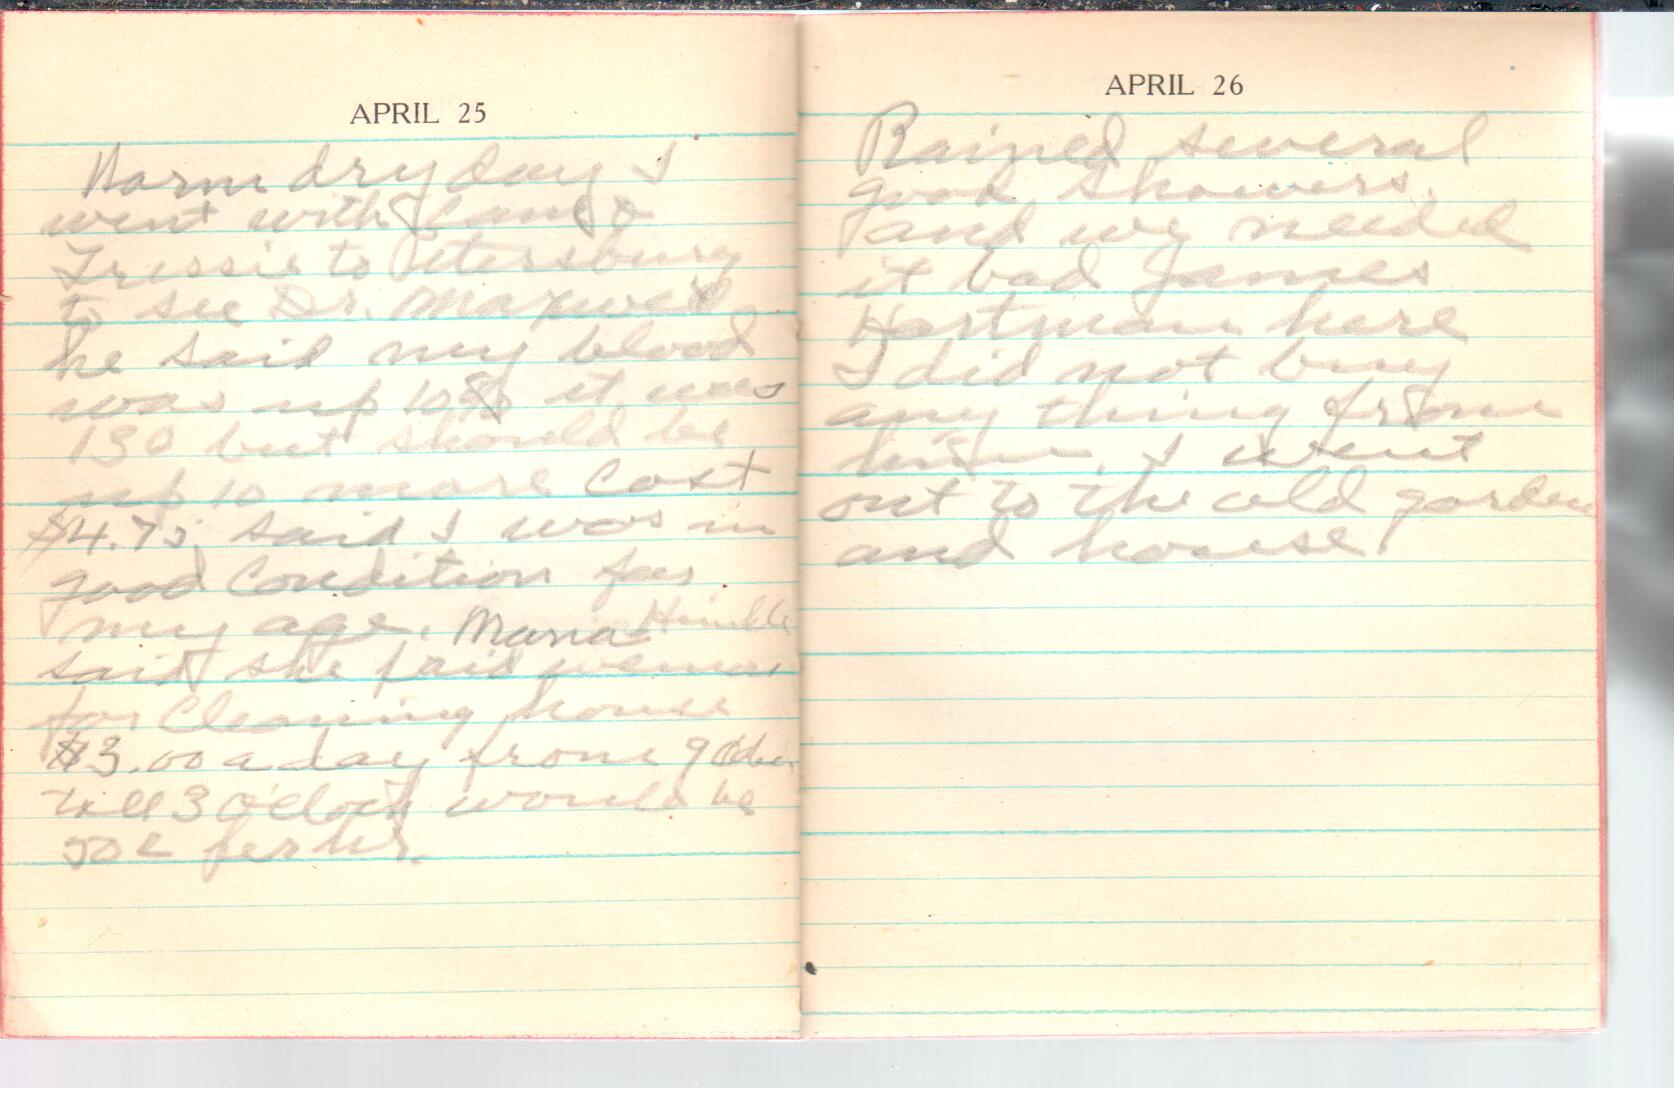 APRIL 25
Warm dry day I
went with &
Tressie to Petersburg
to see Dr. Maxwell
he said my blood
was up it was
130 but should be
up 10 more Cost
$4.75. Said I was in
good Condition for
my age. Maria Himble
said she paid
for Cleaning house
$3.00 a day from 9
till 3 o'clock would be
50¢ per hr.
APRIL 26
Rained several
good showers.
and we needed
it bad James
Hartman here
I did not buy
any thing from
him. I went
out to the old garden
and house.